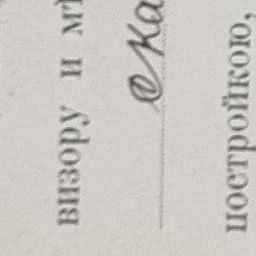 визору и мѣ
ска
постройкою,